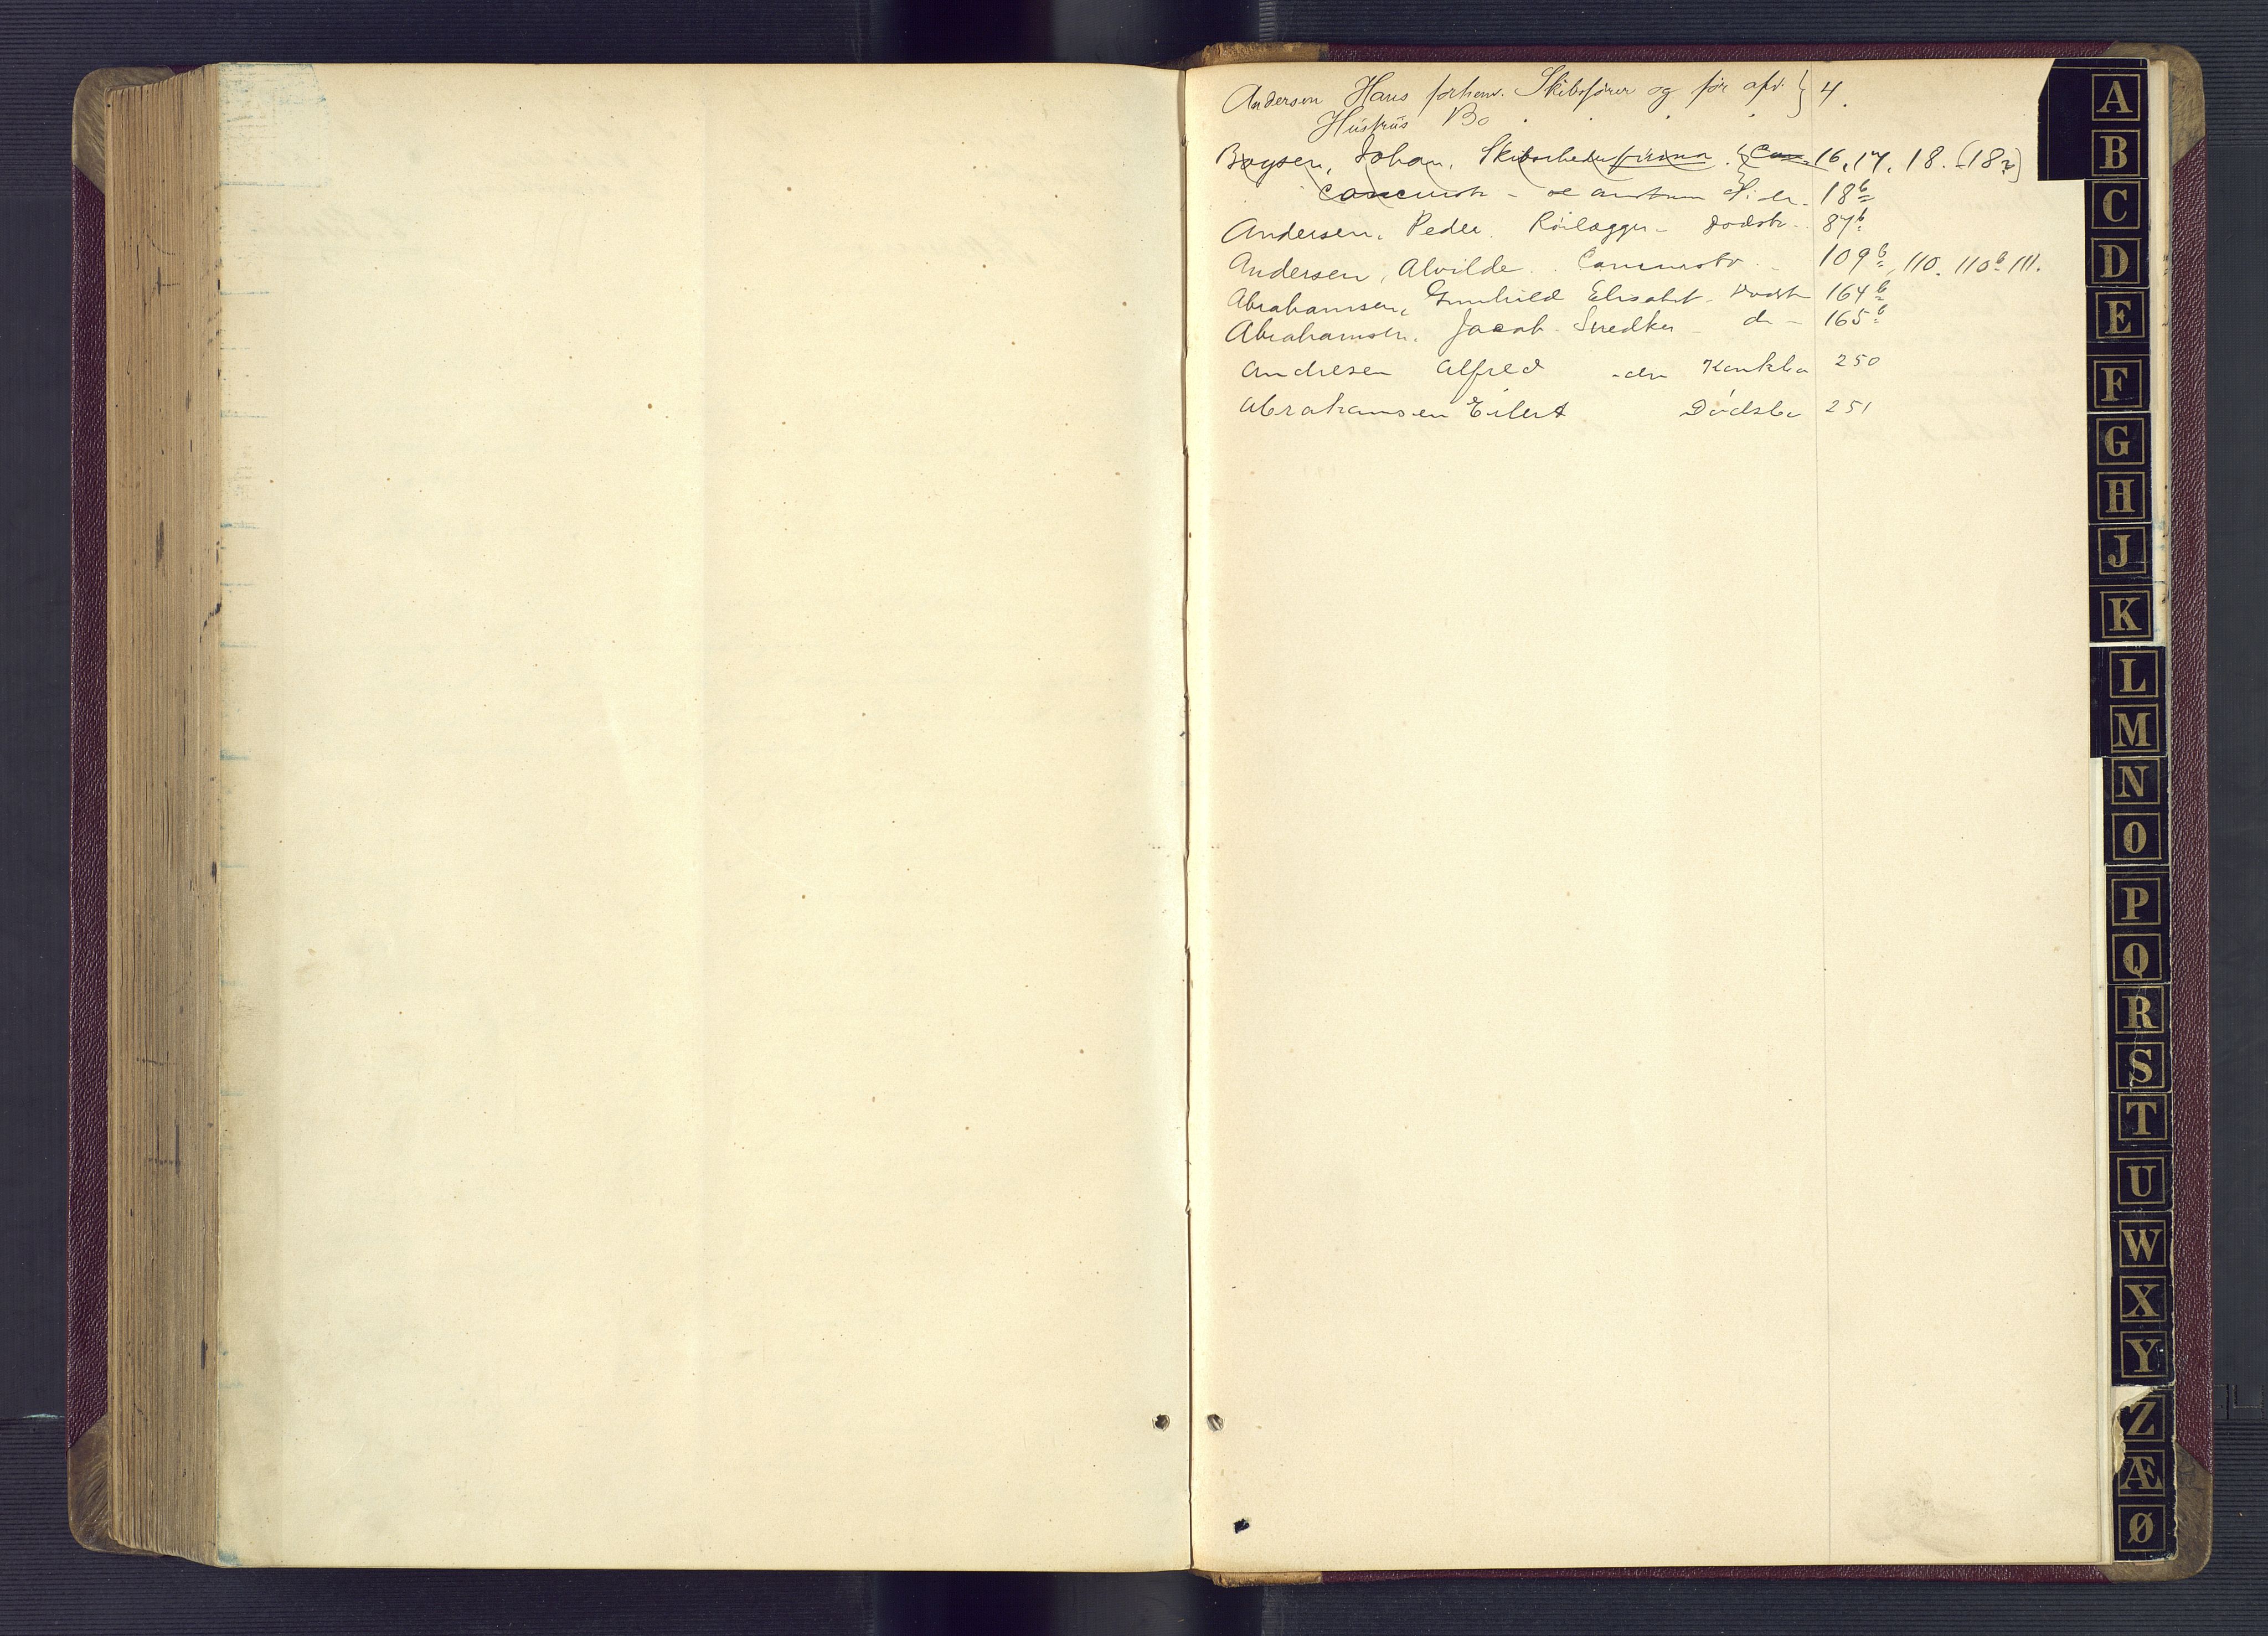 Andersen Hans forhenv. Skibsfører og før afd. } 4.
Hustrus Bo
Boysen, Johan, Skibsrhederfirma. Con. 16, 17, 18. (18b)
Concursb - 18b
Andersen, Peder. Rörlægger - Dödsb. 87b
Andersen, Alvilde. Concursbo - 109b, 110. 110b 111.
Abrahamsen, Gunhild Elisabet - Dödsb 164b
Abrahamsen, Jacob. Snedker - do - 165b
Andresen Alfred Konkbo 250
Abrahamsen Eilert Dødsbo 251
A
B
C
D
E
F
G
H
J
K
L
M
N
O
P
Q
R
S
T
U
W
X
Y
Z
Æ
Ø